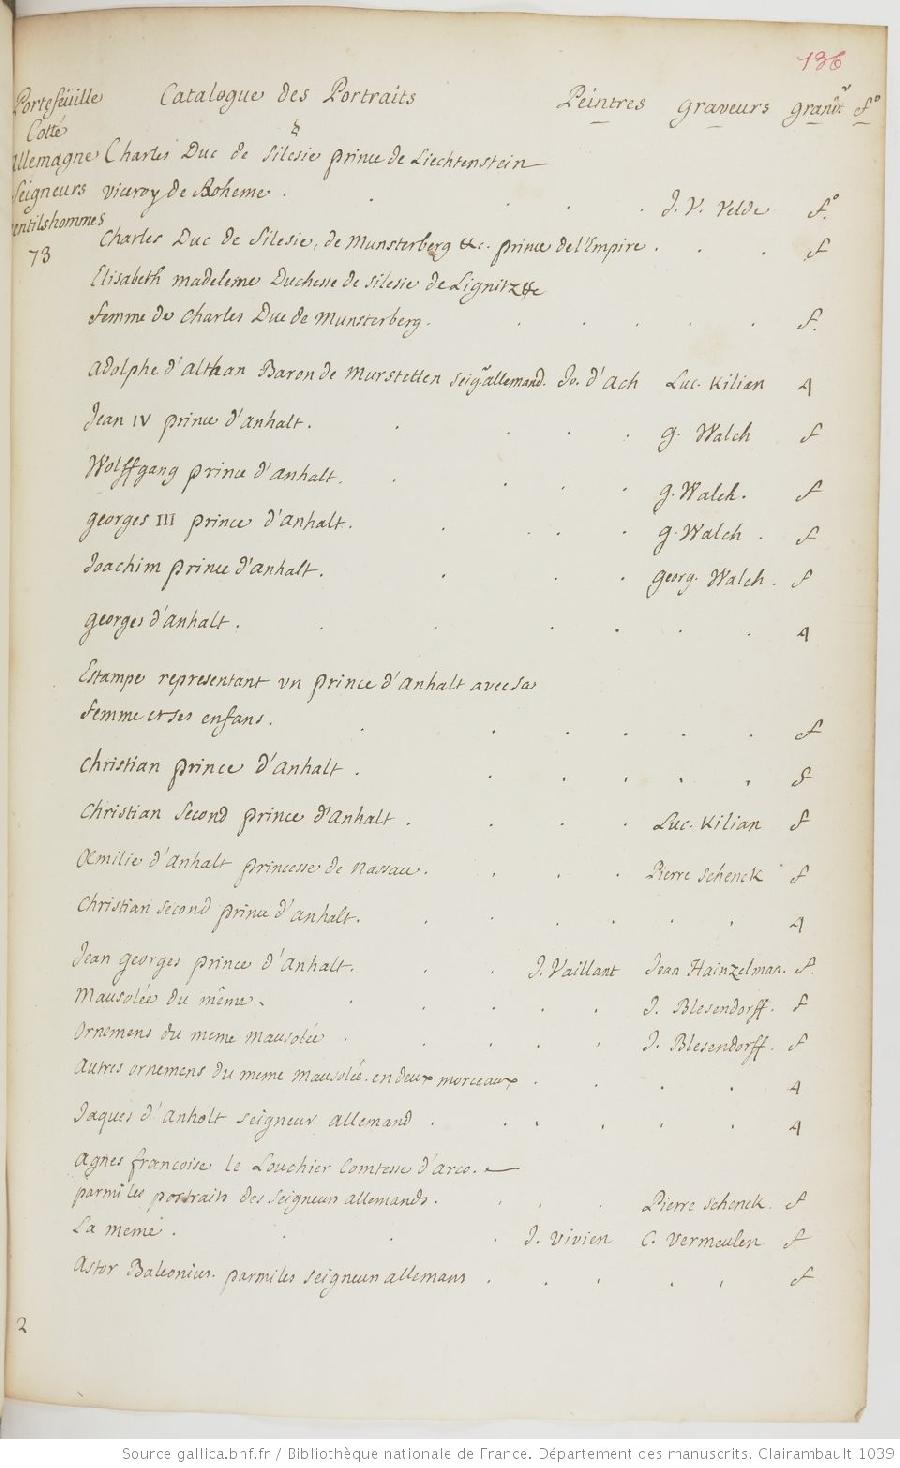 136
Portefeüille Catalogue des Portraits Peintres graveurs grand.r f.o
Cotté
allemagne Charles Duc de Silesie prince de Liechtenstein
Seigneurs viceroy de Boheme . . . . . J. V. Velde f.o
gentilshommes
73 Charles Duc de Silesie, de Munsterberg &c. prince de l'Empire . . . f
Elisabeth madeleine Duchesse de Silesie de Lignitz &c
femme de Charles Duc de Munsterberg. . . . . . f.
Adolphe d'Althan Baron de Murstetten seig.r allemand. Jo. d'Ach Luc. Kilian 4
Jean IV prince d'anhalt. . . . . g. Walch f
Wolffgang prince d'anhalt. . . . . g. Walch. f
georges III prince d'anhalt. . . . . g. Walch . f
Joachim prince d'anhalt. . . . georg. Walch . f
georges d'anhalt. . . . . . . 4
Estampe representant un prince d'anhalt avec sa
femme et ses enfans. . . . . . . f
Christian prince d'anhalt . . . . . . f
Christian Second prince d'anhalt . . . . Luc. Kilian f
Æmilie d'anhalt princesse de Nassau. . . . Pierre Schenck f
Christian second prince d'anhalt. . . . . . . 4
Jean georges prince d'Anhalt. . . J. Vaillant Jean Hainzelman. f.
Mausolée du même. . . . . . J. Blesendorff. f
Ornemens du meme mausolée . . . . . J. Blesendorff. f
autres ornemens du meme mausolée. en deux morceaux . . . . 4
Jaques d'Anholt seigneur allemand . . . . . . 4
Agnes francoise le Louchier Comtesse d'arco.
parmi les portraits des seigneurs allemands. . . . Pierre Schenck. f
La meme . . . . J. Vivien C. Vermeulen f
Astor Baleonius. parmi les seigneurs allemans . . . . . f
2
Source gallica.bnf.fr / Bibliothèque nationale de France. Département des manuscrits. Clairambault 1039